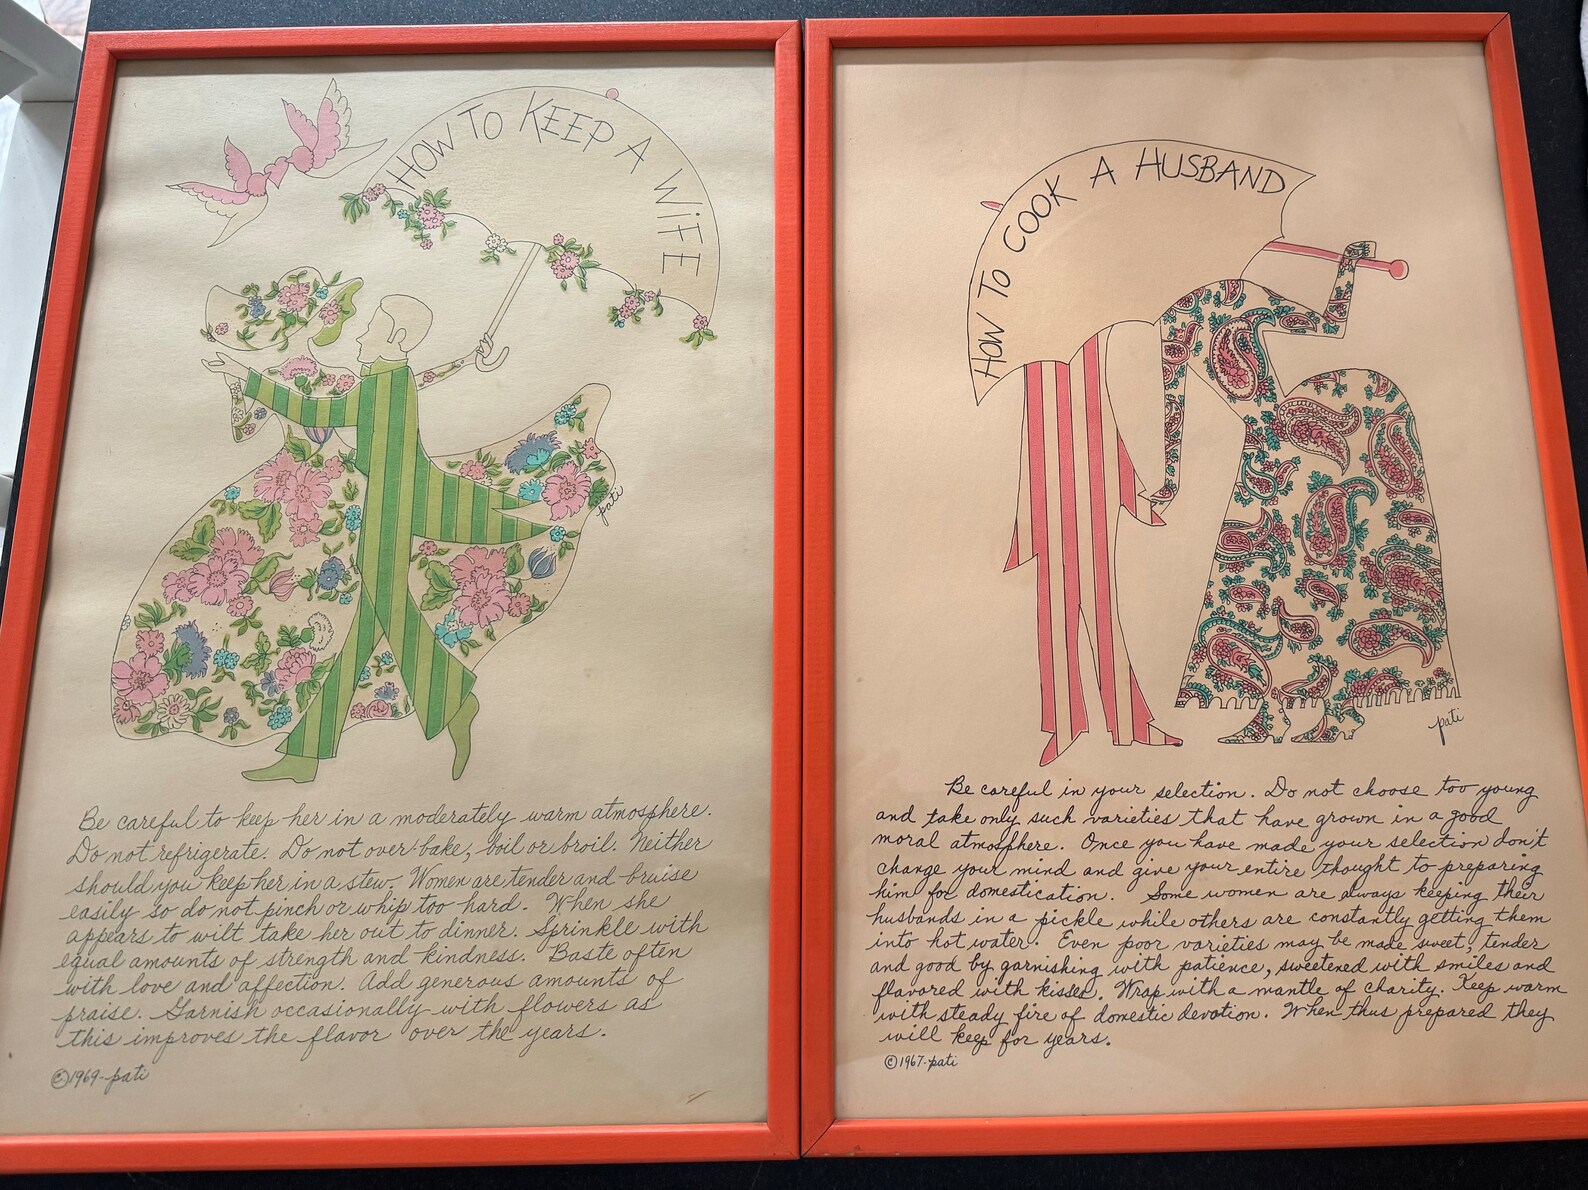 HOW TO KEEP A WIFE
pati
Be careful to keep her in a moderately warm atmosphere.
Do not refrigerate. Do not over-bake, boil or broil. Neither
should you keep her in a stew. Women are tender and bruise
easily so do not pinch or whip too hard. When she
appears to wilt take her out to dinner. Sprinkle with
equal amounts of strength and kindness. Baste often
with love and affection. Add generous amounts of
praise. Garnish occasionally with flowers as
this improves the flavor over the years.
©1969-pati
HOW TO COOK A HUSBAND
pati
Be careful in your selection. Do not choose too young
and take only such varieties that have grown in a good
moral atmosphere. Once you have made your selection don't
change your mind and give your entire thought to preparing
him for domestication. Some women are always keeping their
husbands in a pickle while others are constantly getting them
into hot water. Even poor varieties may be made sweet, tender
and good by garnishing with patience, sweetened with smiles and
flavored with kisses. Wrap with a mantle of charity. Keep warm
with steady fire of domestic devotion. When thus prepared they
will keep for years.
©1967-pati